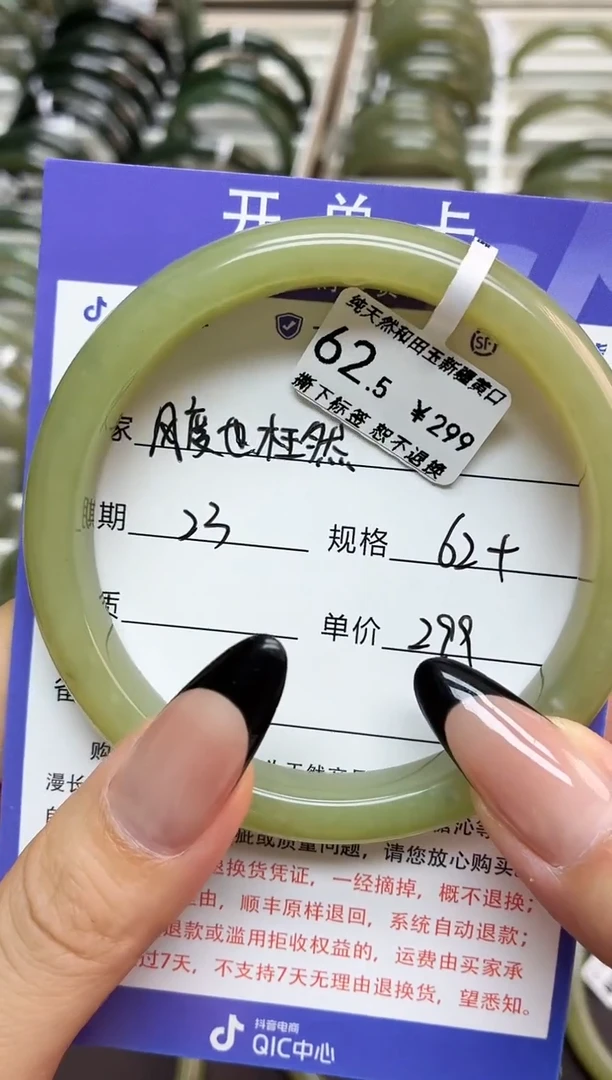 开单卡
纯天然和田玉新疆黄口
62.5 ¥299
撕下标签 恕不退换
家 风度也枉然
期 23 规格 62+
质 单价 299
购
漫长
疵或质量问题，请您放心购买。
退换货凭证，一经摘掉，概不退换；
由，顺丰原样退回，系统自动退款；
退款或滥用拒收权益的，运费由买家承
过7天，不支持7天无理由退换货，望悉知。
抖音电商
QIC中心